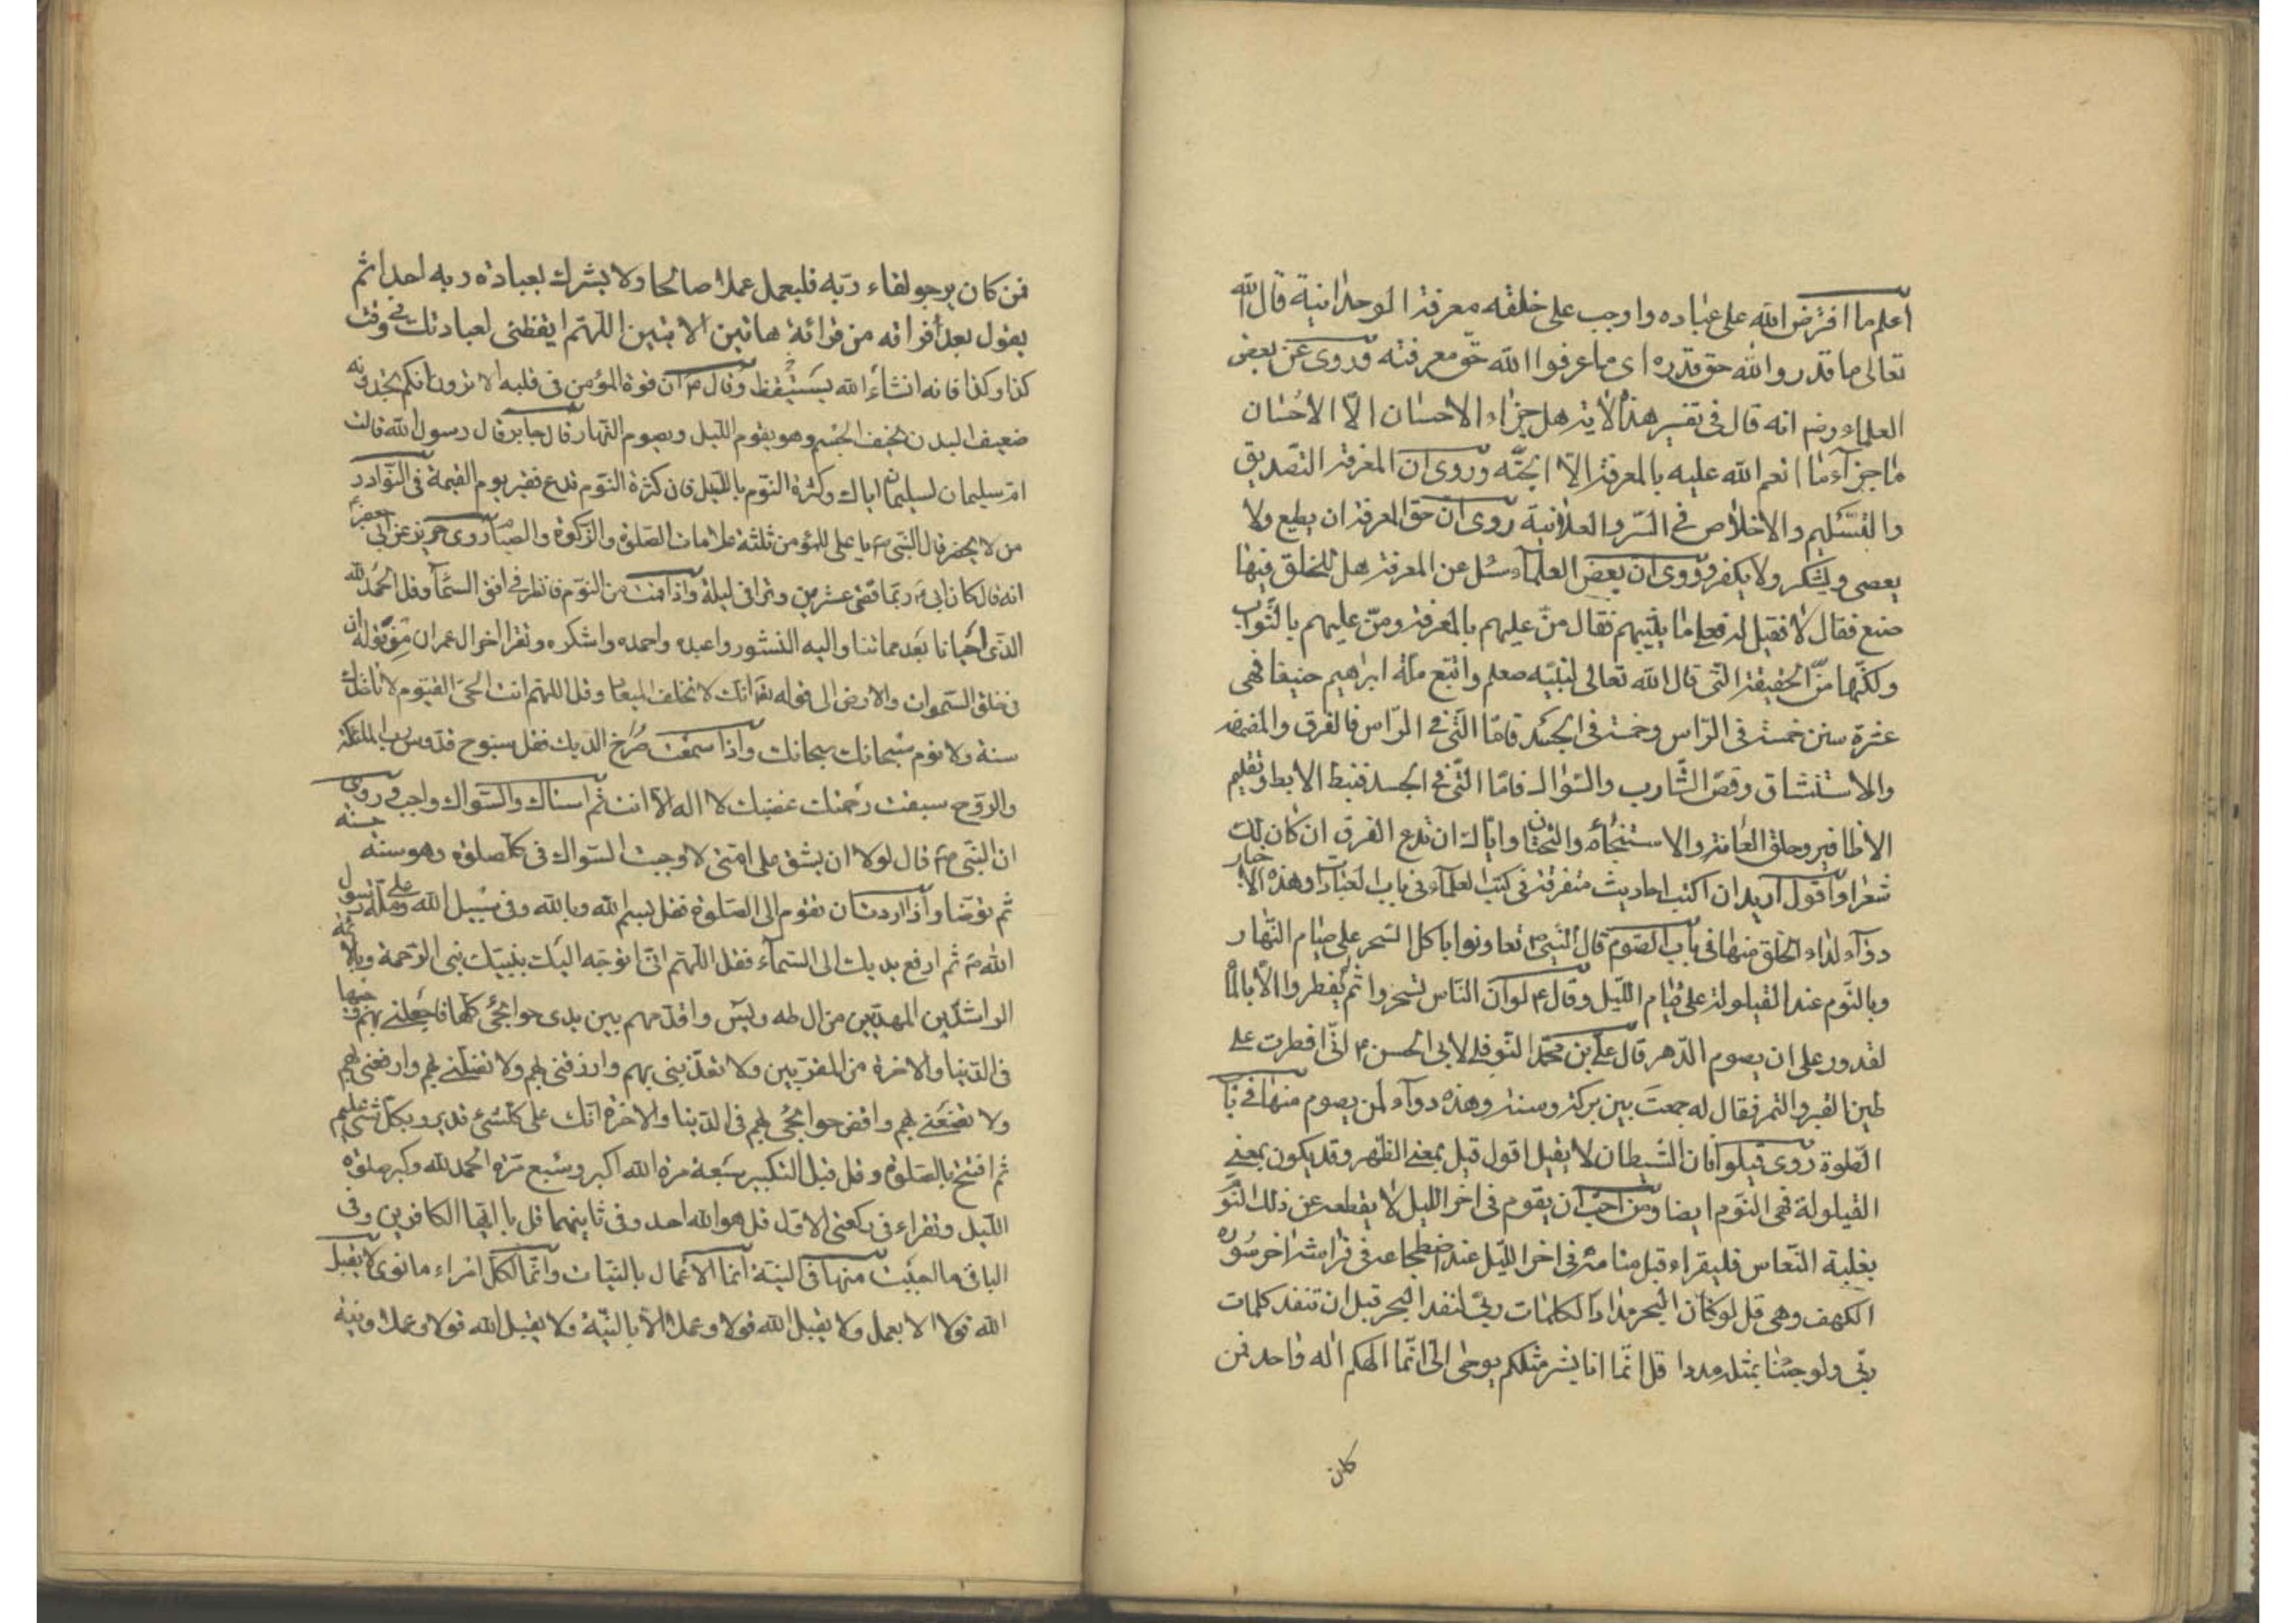 اعلم ما افترض الله على عباده واوجب على خلقه معرفة الوحدانية قال الله
تعالى ما قدروا الله حق قدره اى ما عرفوا الله حق معرفته وروى عن بعض
العلماء رضه انه قال فى تفسير هذه الاية هل جزاء الاحسان الّا الاحسان
ما جزاء من انعم الله عليه بالمعرفة الّا الجنّه وروى ان المعرفة التصديق
والتسليم والاخلاص فى السر والعلانية روى ان حق المعرفة ان يطيع ولا
يعصى ويشكر ولا يكفر وروى ان بعض العلماء سئل عن المعرفة هل للخلق فيها
صنع فقال لا فقيل له فعلى ما يثيبهم فقال منّ عليهم بالمعرفة ومنّ عليهم بالثواب
ولكنها من الحنيفية التى قال الله تعالى لنبيّه صعلم واتبع ملة ابرهيم حنيفا فهى
عشرة سنن خمسة فى الراس وخمسة فى الجسد فامّا التى فى الراس فالفرق والمضمضه
والاستنشاق وقصّ الشارب والسّواك فامّا التى فى الجسد فنتف الابط وتقليم
الاظافير وحلق العانة والاستنجاء والختان واياك ان تدع الفرق ان كان لك
شعرا واقول اريد ان اكتب احاديث متفرقة فى كتب العلماء فى باب العبادات وهذه الاخبار
دوآء لداء الخلق منها فى باب الصوم قال النبىّ ص تعاونوا باكل السحر على صيام النهار
وبالنّوم عند القيلولة على قيام الليل وقال ع لو ان الناس تسحروا ثم يفطروا الّا بالماء
لقدروا على ان يصوم الدّهر قال على بن محمّد النوفلى لابى الحسن ع انّى افطرت على
طين القبر والتمر فقال له جمعت بين بركة وسنة وهذه دوآء لمن يصوم منها فى باب
الصّلوة روى قيلوا فان الشيطان لا يقيل اقول قيل بمعنى الظهر وقد يكون بمعنى
القيلولة فهى النوم ايضا ومن احبّ ان يقوم فى اخر الليل لا يقطعه عن ذلك النوم
بغلبة النعاس فليقراء قبل منامه فى اخر الليل عند اضطجاعه فى فراشه اخر سوره
الكهف وهى قل لو كان البحر مدادا لكلمات ربّى لنفد البحر قبل ان تنفد كلمات
ربّى ولو جئنا بمثله مددا قل انّما انا بشر مثلكم يوحى الىّ انّما الهكم اله واحد فمن
كان
فمن كان يرجو لقاء ربّه فليعمل عملا صالحا ولا يشرك بعبادة ربه احدا ثم
يقول بعد فراقه من قرائة هاتين الايتين اللّهم ايقظنى لعبادتك فى وقت
كذا وكذا فانه انشاء الله يستيقظ وقال ع ان قوة المؤمن فى قلبه الا ترون انكم تجدونه
ضعيف البدن نحيف الجسم وهو يقوم الليل ويصوم النهار قال جابر قال رسول الله قالت
امّ سليمان لسليمان اياك وكثرة النّوم بالليل فان كثرة النّوم تدع فقير يوم القيمة فى النّوادر
من لا يحضر قال النبى ص يا على للمؤمن ثلثة علامات الصلوة والزكوة والصيام روى حريز عن ابى جعفر ع
انه قال كان ابى ع ربّما قضى عشرين وترا فى ليلة واذا قمت من النوم فانظر فى افق السّماء وقل الحمد لله
الذى احيانا بعد مماتنا واليه النشور واعبده واحمده واشكره وتقرا اخر ال عمران من قوله ان
فى خلق السموات والارض الى قوله تعا انك لا تخلف الميعاد وقل اللهم انت الحىّ القيّوم لا تاخذك
سنة ولا نوم سبحانك سبحانك واذا سمعت صراخ الديك فقل سبوح قدوس رب الملئكة
والرّوح سبقت رحمتك غضبك لا اله الا انت ثم استاك والسّواك واجب وروى
ان النبى ص قال لولا ان يشق على امتى لاوجبت السّواك فى كل صلوة وهو سنة حسنه
ثم توضا واذا اردت ان تقوم الى الصّلوة فقل بسم الله وبالله وفى سبيل الله وعلى ملّة رسول
الله ص ثم ارفع يديك الى السّماء فقل اللّهم انّى اتوجّه اليك بنبيّك نبى الرّحمة وبالائمّة
الراشدين المهديين من ال طه ويس واقدّمهم بين يدى حوائجى كلّها فاجعلنى بهم وجيها
فى الدّنيا والاخرة من المقرّبين ولا تعذّبنى بهم وارزقنى بهم ولا تضلّنى بهم وارفعنى بهم
ولا تضعنى بهم واقض حوائجى بهم فى الدّنيا والاخرة انّك على كلّ شئ قدير وبكلّ شئ عليم
ثم افتتح بالصّلوة وقل قبل التكبير سبعة مرة الله اكبر وسبع مرّة الحمد لله وكبر صلوة
الليل وتقراء فى ركعتى الاوّل قل هو الله احد وفى ثانيهما قل يا ايّها الكافرين وفى
الباقى ما احببت منها فى النيّة انّما الاعمال بالنّيات وانّما لكلّ امراء ما نوى لا يقبل
الله قولا الا بعمل ولا يقبل الله قولا وعملا الّا بالنيّة ولا يقبل الله قولا وعملا ونية